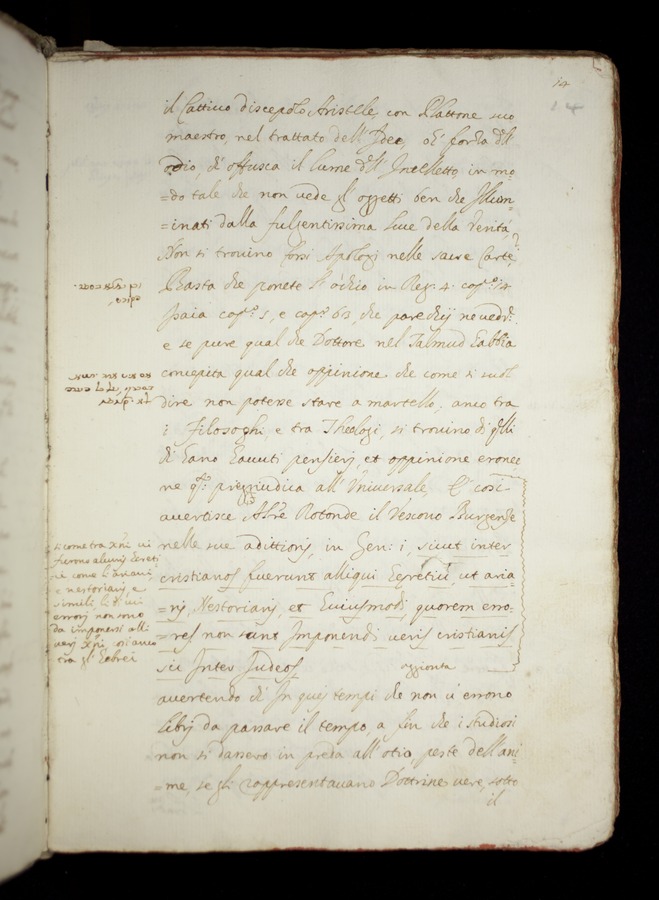 14
il Cattiuo discepolo Aristtle, con Plattone suo
maestro, nel trattato dell' Idee, ch' forza dll
odio, ch' offusca il lume dell' Intelletto in mo=
=do tale che non vede gl' oggetti ben che Illum=
=inati dalla fulgentissima luce della Verità,
Non si trouino forsi Apologi nelle sacre Carte?
Basta che ponete l' ochio in Reg: 4. cap.º 14
Isaia cap.º 5, e cap.º 63, che parechij ne vedr:
e se pure qual che Dottore nel Talmud habbia
concepita qual che oppinione che come si suol
dire non potesse stare a martello, anco tra
i filosophi, e tra Theologi, si trouino di qlli
ch' hano hauuti pensierj, et oppinione eronee
ne qsº pregiudica all' Vniuersale, E' cosi
auertisce Abre Rotonde il Vescouo Burgense
nelle sue adittionj, in Gen: i, sicut inter
cristianos fuerunt alliqui Egretici, ut aria=
=nj, Nestorianj, et Euiusmodi, quorem erro=
=res non sunt Imponendi ueris cristianis
sic Inter Judeos
aggionta
auertendo ch' In quei tempi che non ui errono
libri da passare il tempo, a fin che i studiosi
non si dassero in preda all' otio, peste dell ani=
=me, se gli rappresentauano Dottrine uere, sotto
il
si come tra xni ui
furono alcuni hereti
ci come li ariani,
e nestoriani, e
simili, li di cui
errori non sono
da imponersi alli
ueri xni, cosi anco
tra gl' Ebrei